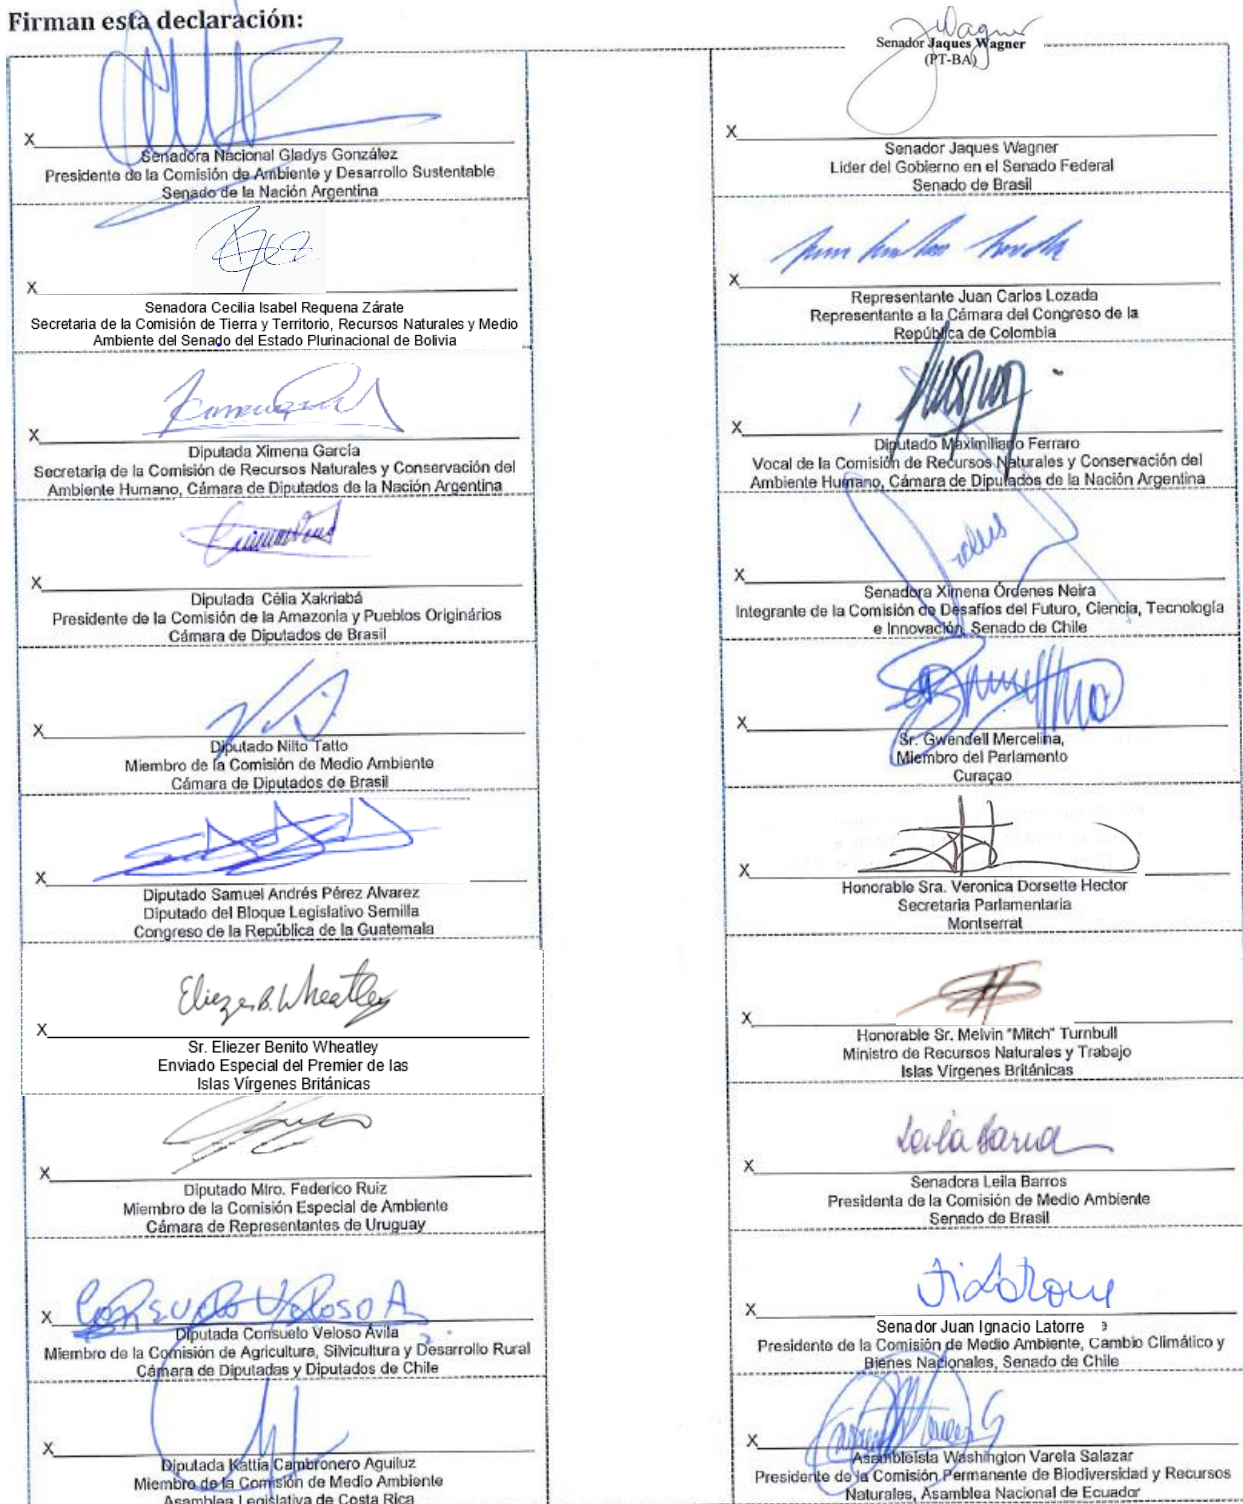 Firman esta declaración:
X
Senadora Nacional Gladys González
Presidente de la Comisión de Ambiente y Desarrollo Sustentable
Senado de la Nación Argentina
X
Senadora Cecilia Isabel Requena Zárate
Secretaria de la Comisión de Tierra y Territorio, Recursos Naturales y Medio
Ambiente del Senado del Estado Plurinacional de Bolivia
X
Diputada Ximena García
Secretaria de la Comisión de Recursos Naturales y Conservación del
Ambiente Humano, Cámara de Diputados de la Nación Argentina
X
Diputada Célia Xakriabá
Presidente de la Comisión de la Amazonia y Pueblos Originários
Cámara de Diputados de Brasil
X
Diputado Nilto Tatto
Miembro de la Comisión de Medio Ambiente
Cámara de Diputados de Brasil
X
Diputado Samuel Andrés Pérez Alvarez
Diputado del Bloque Legislativo Semilla
Congreso de la República de la Guatemala
Eliezer B. Wheatley
X
Sr. Eliezer Benito Wheatley
Enviado Especial del Premier de las
Islas Vírgenes Británicas
X
Diputado Mtro. Federico Ruiz
Miembro de la Comisión Especial de Ambiente
Cámara de Representantes de Uruguay
Consuelo Veloso A.
X
Diputada Consuelo Veloso Ávila
Miembro de la Comisión de Agricultura, Silvicultura y Desarrollo Rural
Cámara de Diputadas y Diputados de Chile
X
Diputada Kattia Cambronero Aguiluz
Miembro de la Comisión de Medio Ambiente
Asamblea Legislativa de Costa Rica
JWagner
Senador Jaques Wagner
(PT-BA)
X
Senador Jaques Wagner
Lider del Gobierno en el Senado Federal
Senado de Brasil
X
Representante Juan Carlos Lozada
Representante a la Cámara del Congreso de la
República de Colombia
X
Diputado Maximiliano Ferraro
Vocal de la Comisión de Recursos Naturales y Conservación del
Ambiente Humano, Cámara de Diputados de la Nación Argentina
X
Senadora Ximena Órdenes Neira
Integrante de la Comisión de Desafíos del Futuro, Ciencia, Tecnología
e Innovación, Senado de Chile
X
Sr. Gwendell Mercelina,
Miembro del Parlamento
Curaçao
X
Honorable Sra. Veronica Dorsette Hector
Secretaria Parlamentaria
Montserrat
X
Honorable Sr. Melvin "Mitch" Turnbull
Ministro de Recursos Naturales y Trabajo
Islas Vírgenes Británicas
Leila Barros
X
Senadora Leila Barros
Presidenta de la Comisión de Medio Ambiente
Senado de Brasil
X
Senador Juan Ignacio Latorre
Presidente de la Comisión de Medio Ambiente, Cambio Climático y
Bienes Nacionales, Senado de Chile
X
Asambleísta Washington Varela Salazar
Presidente de la Comisión Permanente de Biodiversidad y Recursos
Naturales, Asamblea Nacional de Ecuador